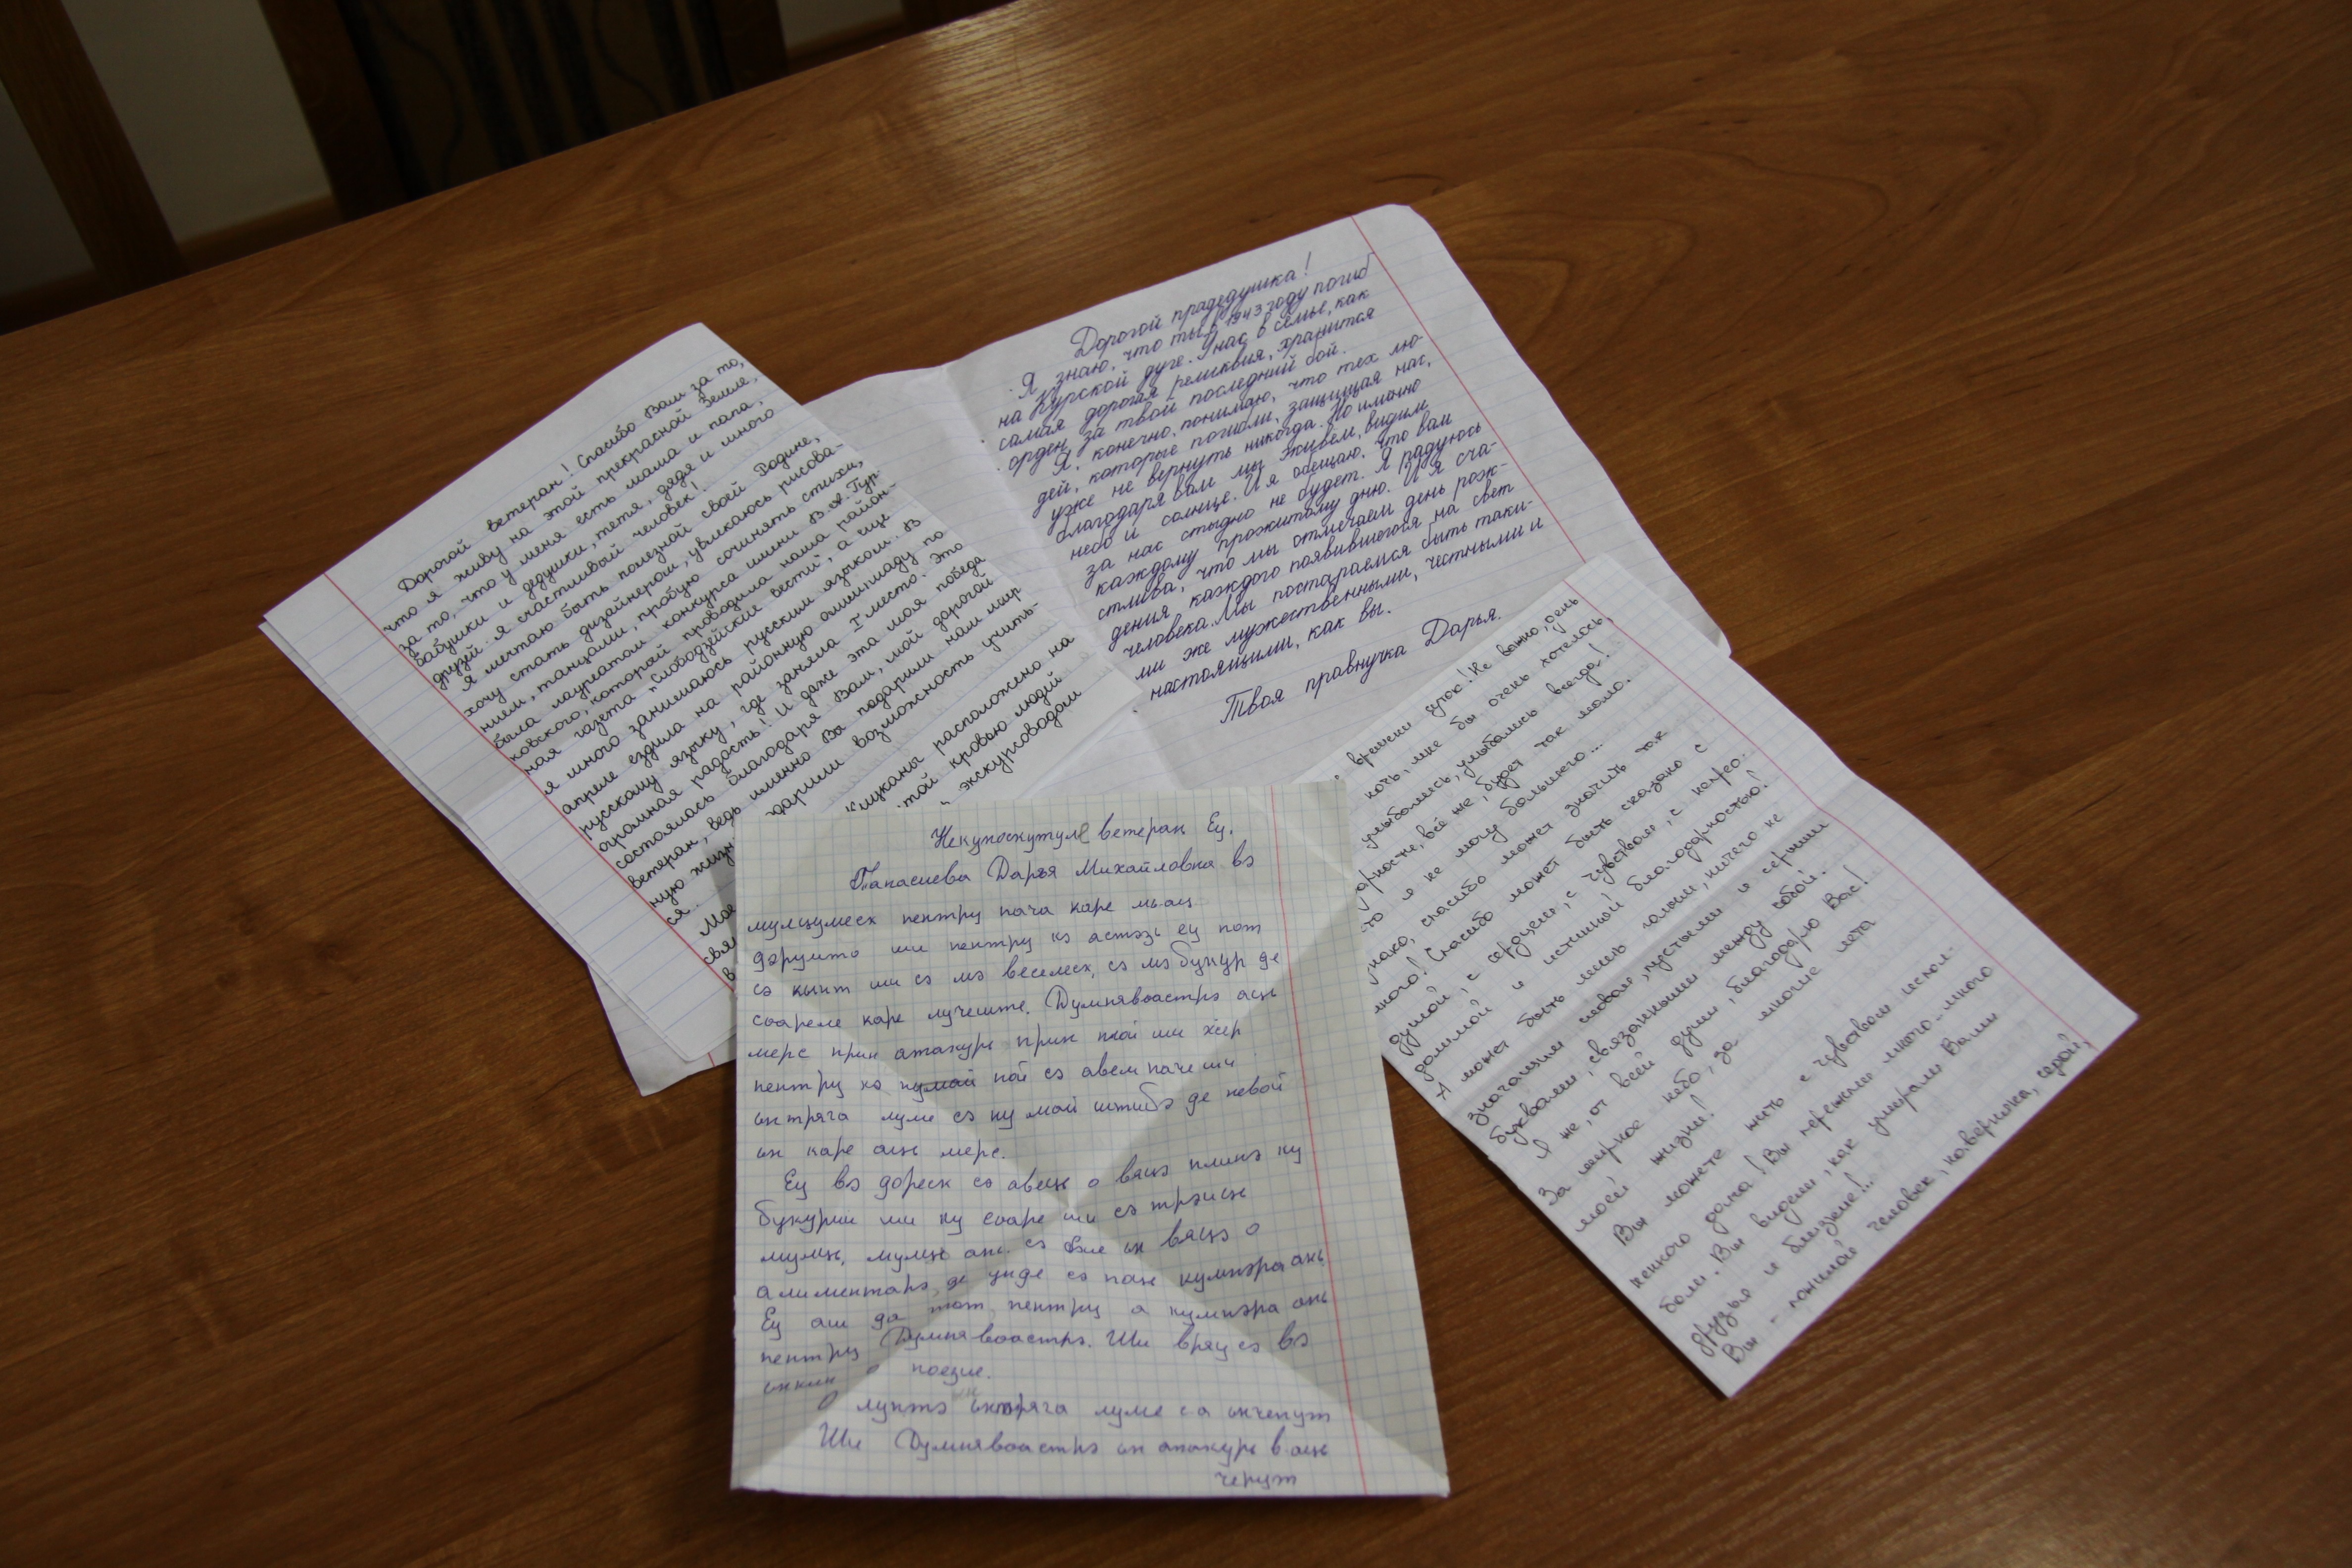 Дорогой ветеран! Спасибо Вам за то,
что я живу на этой прекрасной Земле,
за то, что у меня есть мама и папа,
бабушки и дедушки, тетя, дядя и много
друзей. Я счастливый человек!
Я мечтаю быть полезной своей Родине,
хочу стать дизайнером, увлекаюсь рисова-
нием, танцами, пробую сочинять стихи,
была лауреатом конкурса имени В.
ковского, который проводила наша район-
ная газета "Слободзейские вести", а еще
я много занимаюсь русским языком. В
апреле ездила на районную олимпиаду по
русскому языку, где заняла I место. Это
огромная радость! И даже эта моя победа
состоялась благодаря Вам, мой дорогой
ветеран, ведь именно Вы подарили нам мир
ную жизнь возможность учить-
ся.
Мое
в
расположено на
той кровью людей
экскурсоводом
Дорогой прадедушка!
Я знаю, что ты в 1943 году погиб
на Курской дуге. У нас в семье, как
самая дорогая реликвия, хранится
орден за твой последний бой.
Я, конечно, понимаю, что тех лю-
дей, которые погибли, защищая нас,
уже не вернуть никогда. Но именно
благодаря вам мы живём, видим
небо и солнце. И я обещаю, что вам
за нас стыдно не будет. Я радуюсь
каждому прожитому дню. И я сча-
стлива, что мы отмечаем день рож-
дения каждого появившегося на свет
человека. Мы постараемся быть таки-
ми же мужественными, честными и
настоящими, как вы.
Твоя правнучка Дарья.
времени суток! Не важно, день
ночь, мне бы очень хотелось,
улыбались, улыбались всегда!
всё же, будет так мало.
я не могу большего...
спасибо может значить так
много! Спасибо может быть сказано с
душой, с сердцем, с чувством, с
и истинной благодарностью!
А может быть лишь голым, ничего не
значащим словом, пустыми и серыми
буквами, связанными между собой.
Я же, от всей души, благодарю Вас!
За мирное небо, за многие лета
моей жизни!
Вы можете жить с чувством испол-
ненного долга! Вы пережили много-много
боли. Вы видели, как умирали Ваши
друзья и близкие!..
Вы - пожилой человек, наверняка, седой,
Некуноскутуле ветеран Еу.
Дарья Михайловна вэ
мулцумеск пентру пача каре
дэруито ши пентру кэ астэзь еу пот
сэ кынт ши сэ мэ веселеск, сэ мэ букур де
соареле каре лучеште. Думнявоастрэ аць
мерс прин атакурь прин плой ши жер
пентру кэ ной сэ авем паче ши
ынтряга луме сэ ну май штибэ де невой
ын каре аць мерс.
Еу вэ дореск сэ авець о вяцэ плинэ ку
букурии ши ку соаре ши сэ трэиць
мулць, мулць ань. сэ фие ын вяцэ о
алиментарэ, де унде сэ поць кумпэра ань.
Еу аш да тот, пентру а кумпэра ань
пентру Думнявоастрэ. Ши вряу сэ вэ
ынкин о поезие.
О луптэ ынтряга луме са ынчепут
Ши Думнявоастрэ ын атакурь в-аць
черут